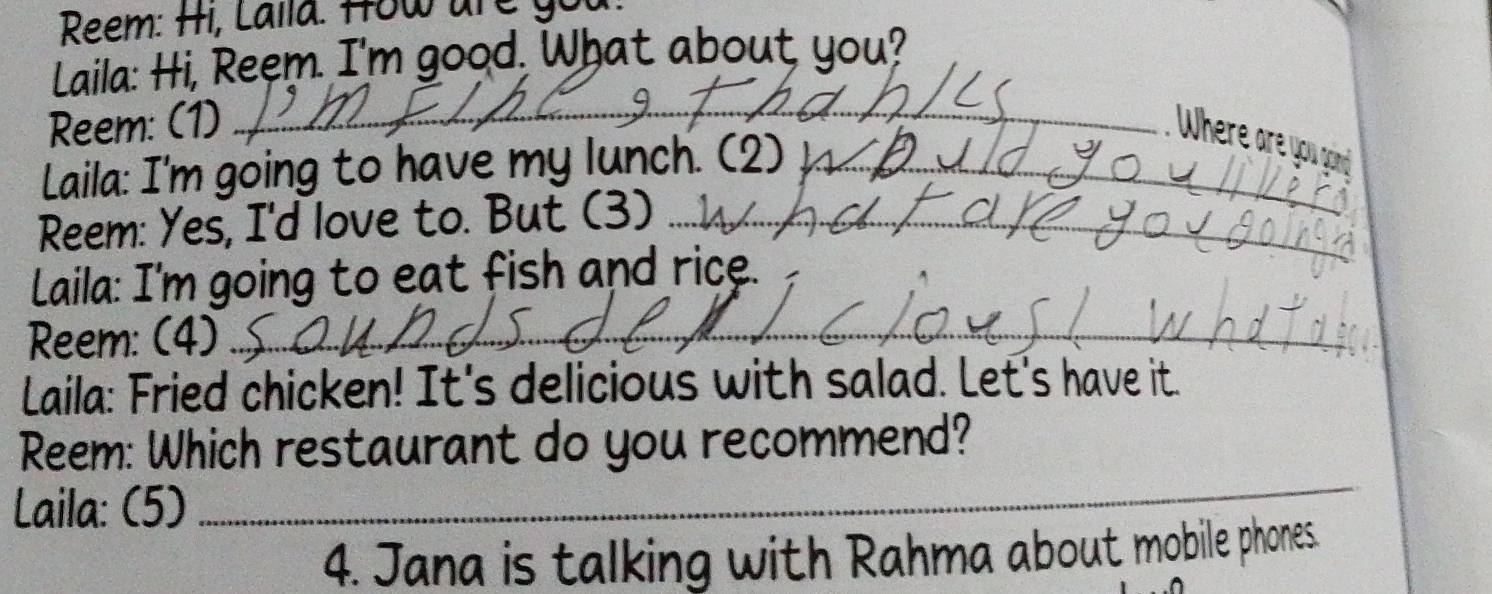 Reem: Hi, Laila. How are you?
Laila: Hi, Reem. I'm good. What about you?
Reem: (1) I'm fine, thanks. Where are you going?
Laila: I'm going to have my lunch. (2) Would you like
Reem: Yes, I'd love to. But (3) what are you going
Laila: I'm going to eat fish and rice.
Reem: (4) sounds delicious! What about
Laila: Fried chicken! It's delicious with salad. Let's have it.
Reem: Which restaurant do you recommend?
Laila: (5)
4. Jana is talking with Rahma about mobile phones.